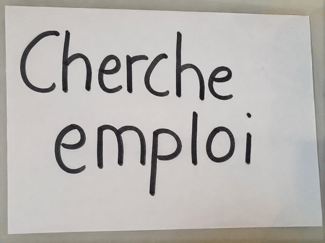 Cherche
emploi